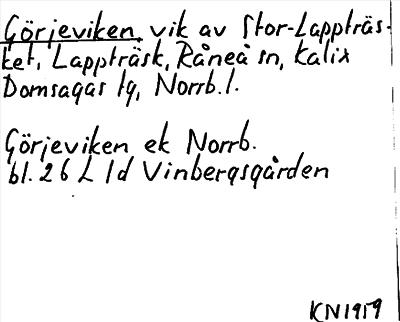 Görjeviken, vik av Stor-Lappträs-
ket, Lappträsk, Råneå sn, Kalix
Domsagas tg, Norrb.l.
Görjeviken ek Norrb.
bl. 26 L 1d Vinbergsgården
KN1959